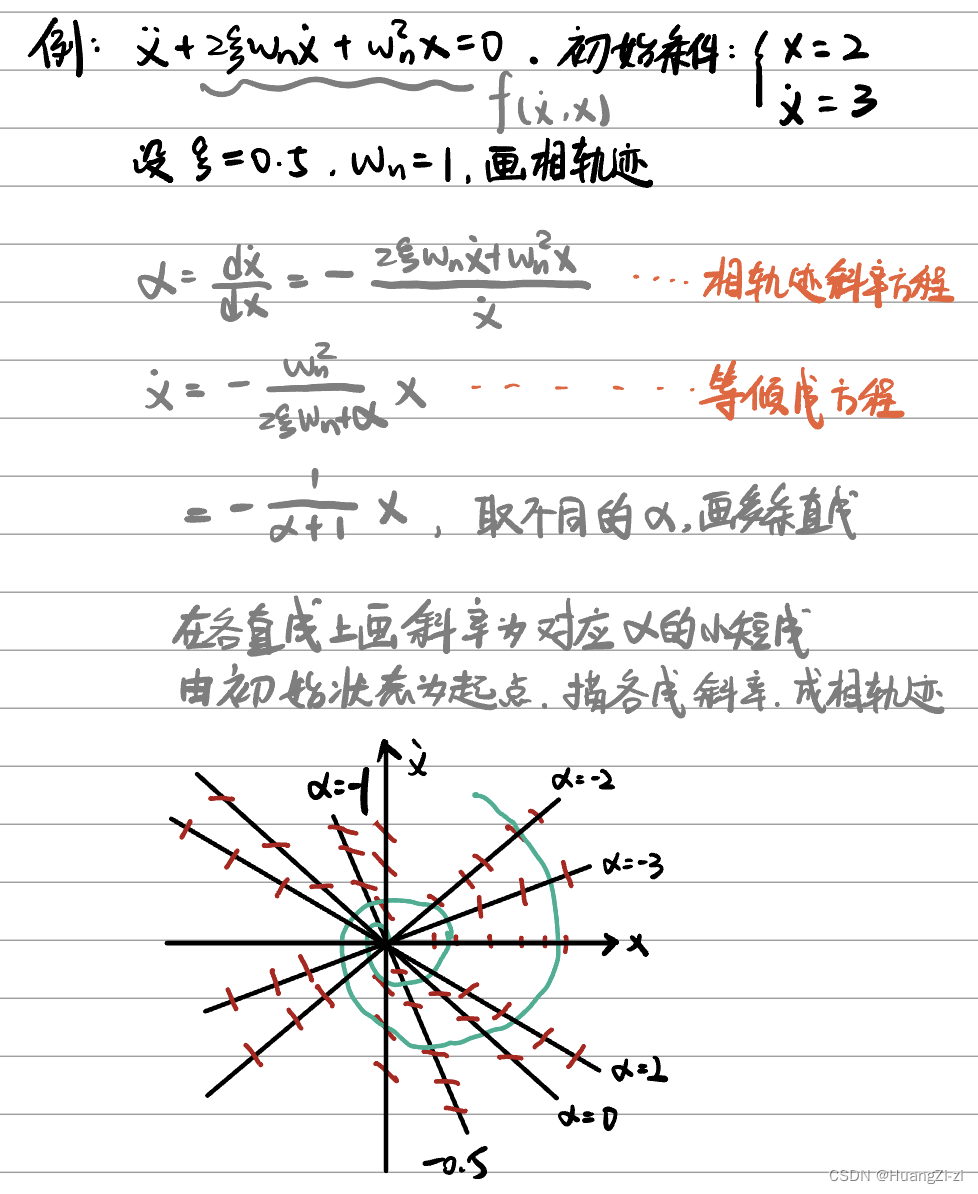 例: ẍ+2ξωnẋ+ωn²x=0. 初始条件: { x=2
ẋ=3
f(ẋ,x)
设ξ=0.5, ωn=1, 画相轨迹
α = dẋ/dx = - (2ξωnẋ+ωn²x)/ẋ ····相轨迹斜率方程
ẋ = - ωn²/(2ξωn+α) x - - - - ····等倾线方程
= - 1/(α+1) x, 取不同的α,画多条直线
在各直线上画斜率为对应α的小短线
由初始状态为起点.描各线斜率.成相轨迹
ẋ
α=-1
α=-2
α=-3
x
α=2
α=0
-0.5
CSDN @HuangZi-zi